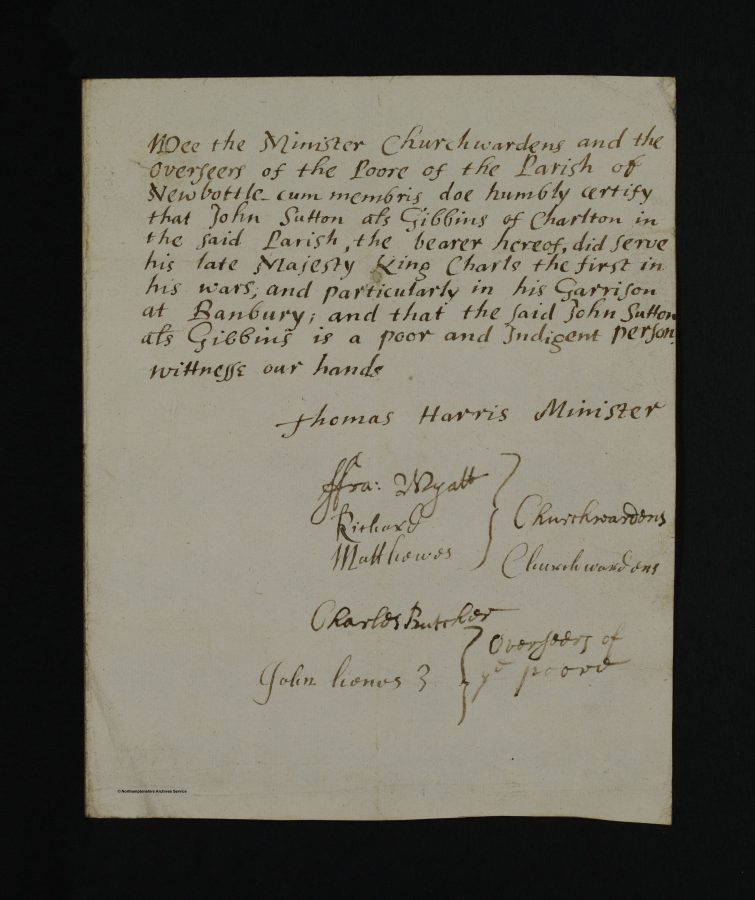 Wee the Minister Churchwardens and the
Overseers of the Poore of the Parish of
Newbottle cum membris doe humbly certify
that John Sutton als Gibbins of Charlton in
the said Parish, the bearer hereof, did serve
his late Majesty King Charls the first in
his wars, and particularly in his Garrison
at Banbury; and that the said John Sutton
als Gibbins is a poor and Indigent person
wittnesse our hands
Thomas Harris Minister
ffra: Wyatt
Richard
Matthewes
Churchwardens
Churchwardens
Charles Butcher
John
Overseers of
ye poore
© Northamptonshire Archives Service